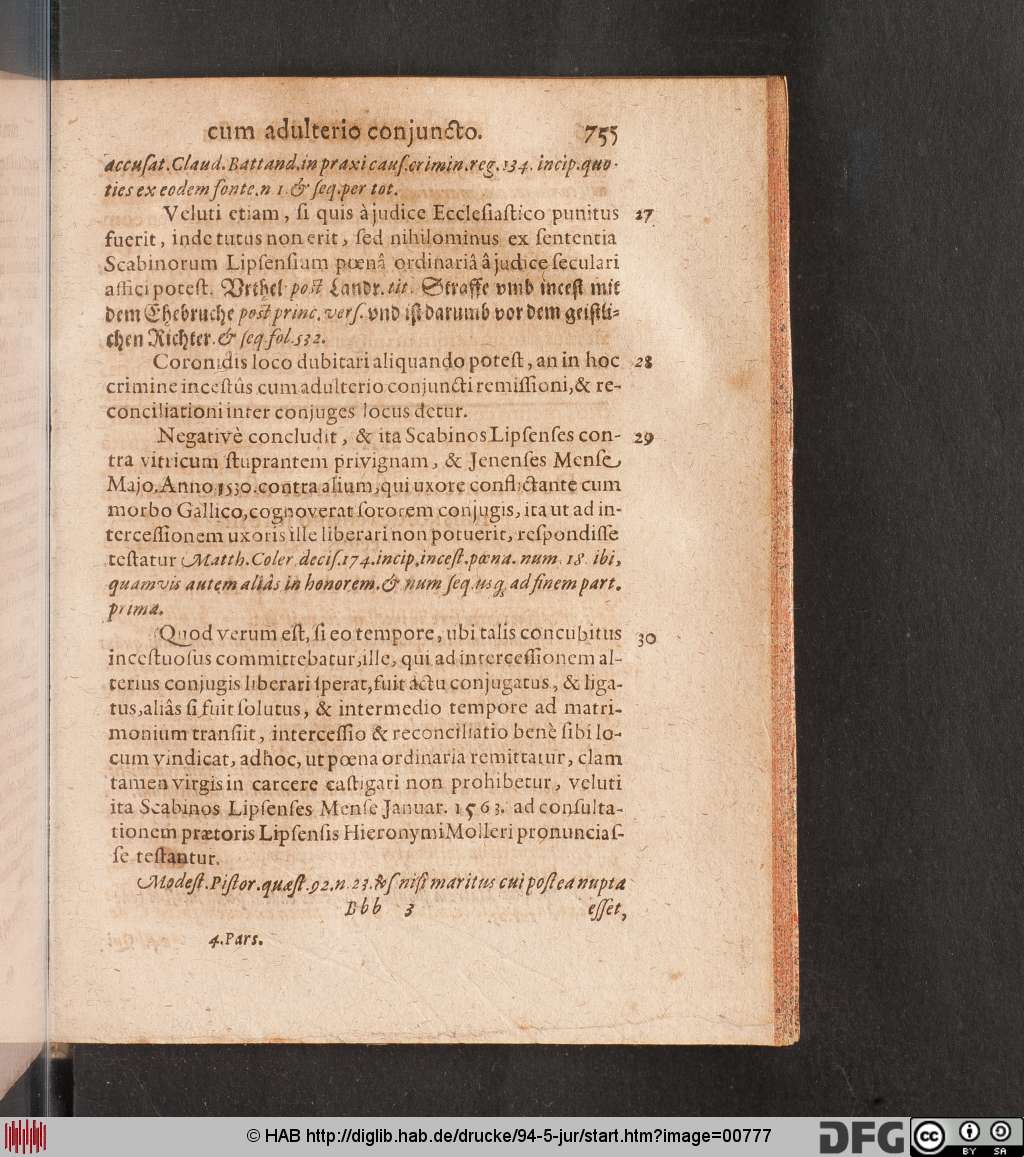 cum adulterio conjuncto. 755
accusat. Claud. Battand. in praxi caus. crimin. reg. 134. incip. quo-
ties ex eodem fonte. n 1. & seq. per tot.
Veluti etiam, si quis à judice Ecclesiastico punitus 27
fuerit, inde tutus non erit, sed nihilominus ex sententia
Scabinorum Lipsensium pœnâ ordinariâ â judice seculari
affici potest. Vrthel post Landr. tit. Straffe vmb incest mit
dem Ehebruche post princ. vers. vnd ist darumb vor dem geistli-
chen Richter. & seq. fol. 532.
Coronidis loco dubitari aliquando potest, an in hoc 28
crimine incestûs cum adulterio conjuncti remissioni, & re-
conciliationi inter conjuges locus detur.
Negativè concludit, & ita Scabinos Lipsenses con- 29
tra vitricum stuprantem privignam, & Jenenses Mense
Majo. Anno 1530. contra alium, qui uxore conflictante cum
morbo Gallico, cognoverat sororem conjugis, ita ut ad in-
tercessionem uxoris ille liberari non potuerit, respondisse
testatur Matth. Coler. decis. 174. incip. incest. pœna. num. 18. ibi,
quamvis autem aliàs in honorem. & num seq. usq; ad finem part.
prima.
Quod verum est, si eo tempore, ubi talis concubitus 30
incestuosus committebatur, ille, qui ad intercessionem al-
terius conjugis liberari sperat, fuit actu conjugatus, & liga-
tus, aliâs si fuit solutus, & intermedio tempore ad matri-
monium transiit, intercessio & reconciliatio benè sibi lo-
cum vindicat, adhoc, ut pœna ordinaria remittatur, clam
tamen virgis in carcere castigari non prohibetur, veluti
ita Scabinos Lipsenses Mense Januar. 1563. ad consulta-
tionem prætoris Lipsensis Hieronymi Molleri pronuncias-
se testantur.
Modest. Pistor. quæst. 92. n. 23. & s. nisi maritus cui postea nupta
Bbb 3 esset,
4. Pars.
© HAB http://diglib.hab.de/drucke/94-5-jur/start.htm?image=00777
DFG cc BY SA